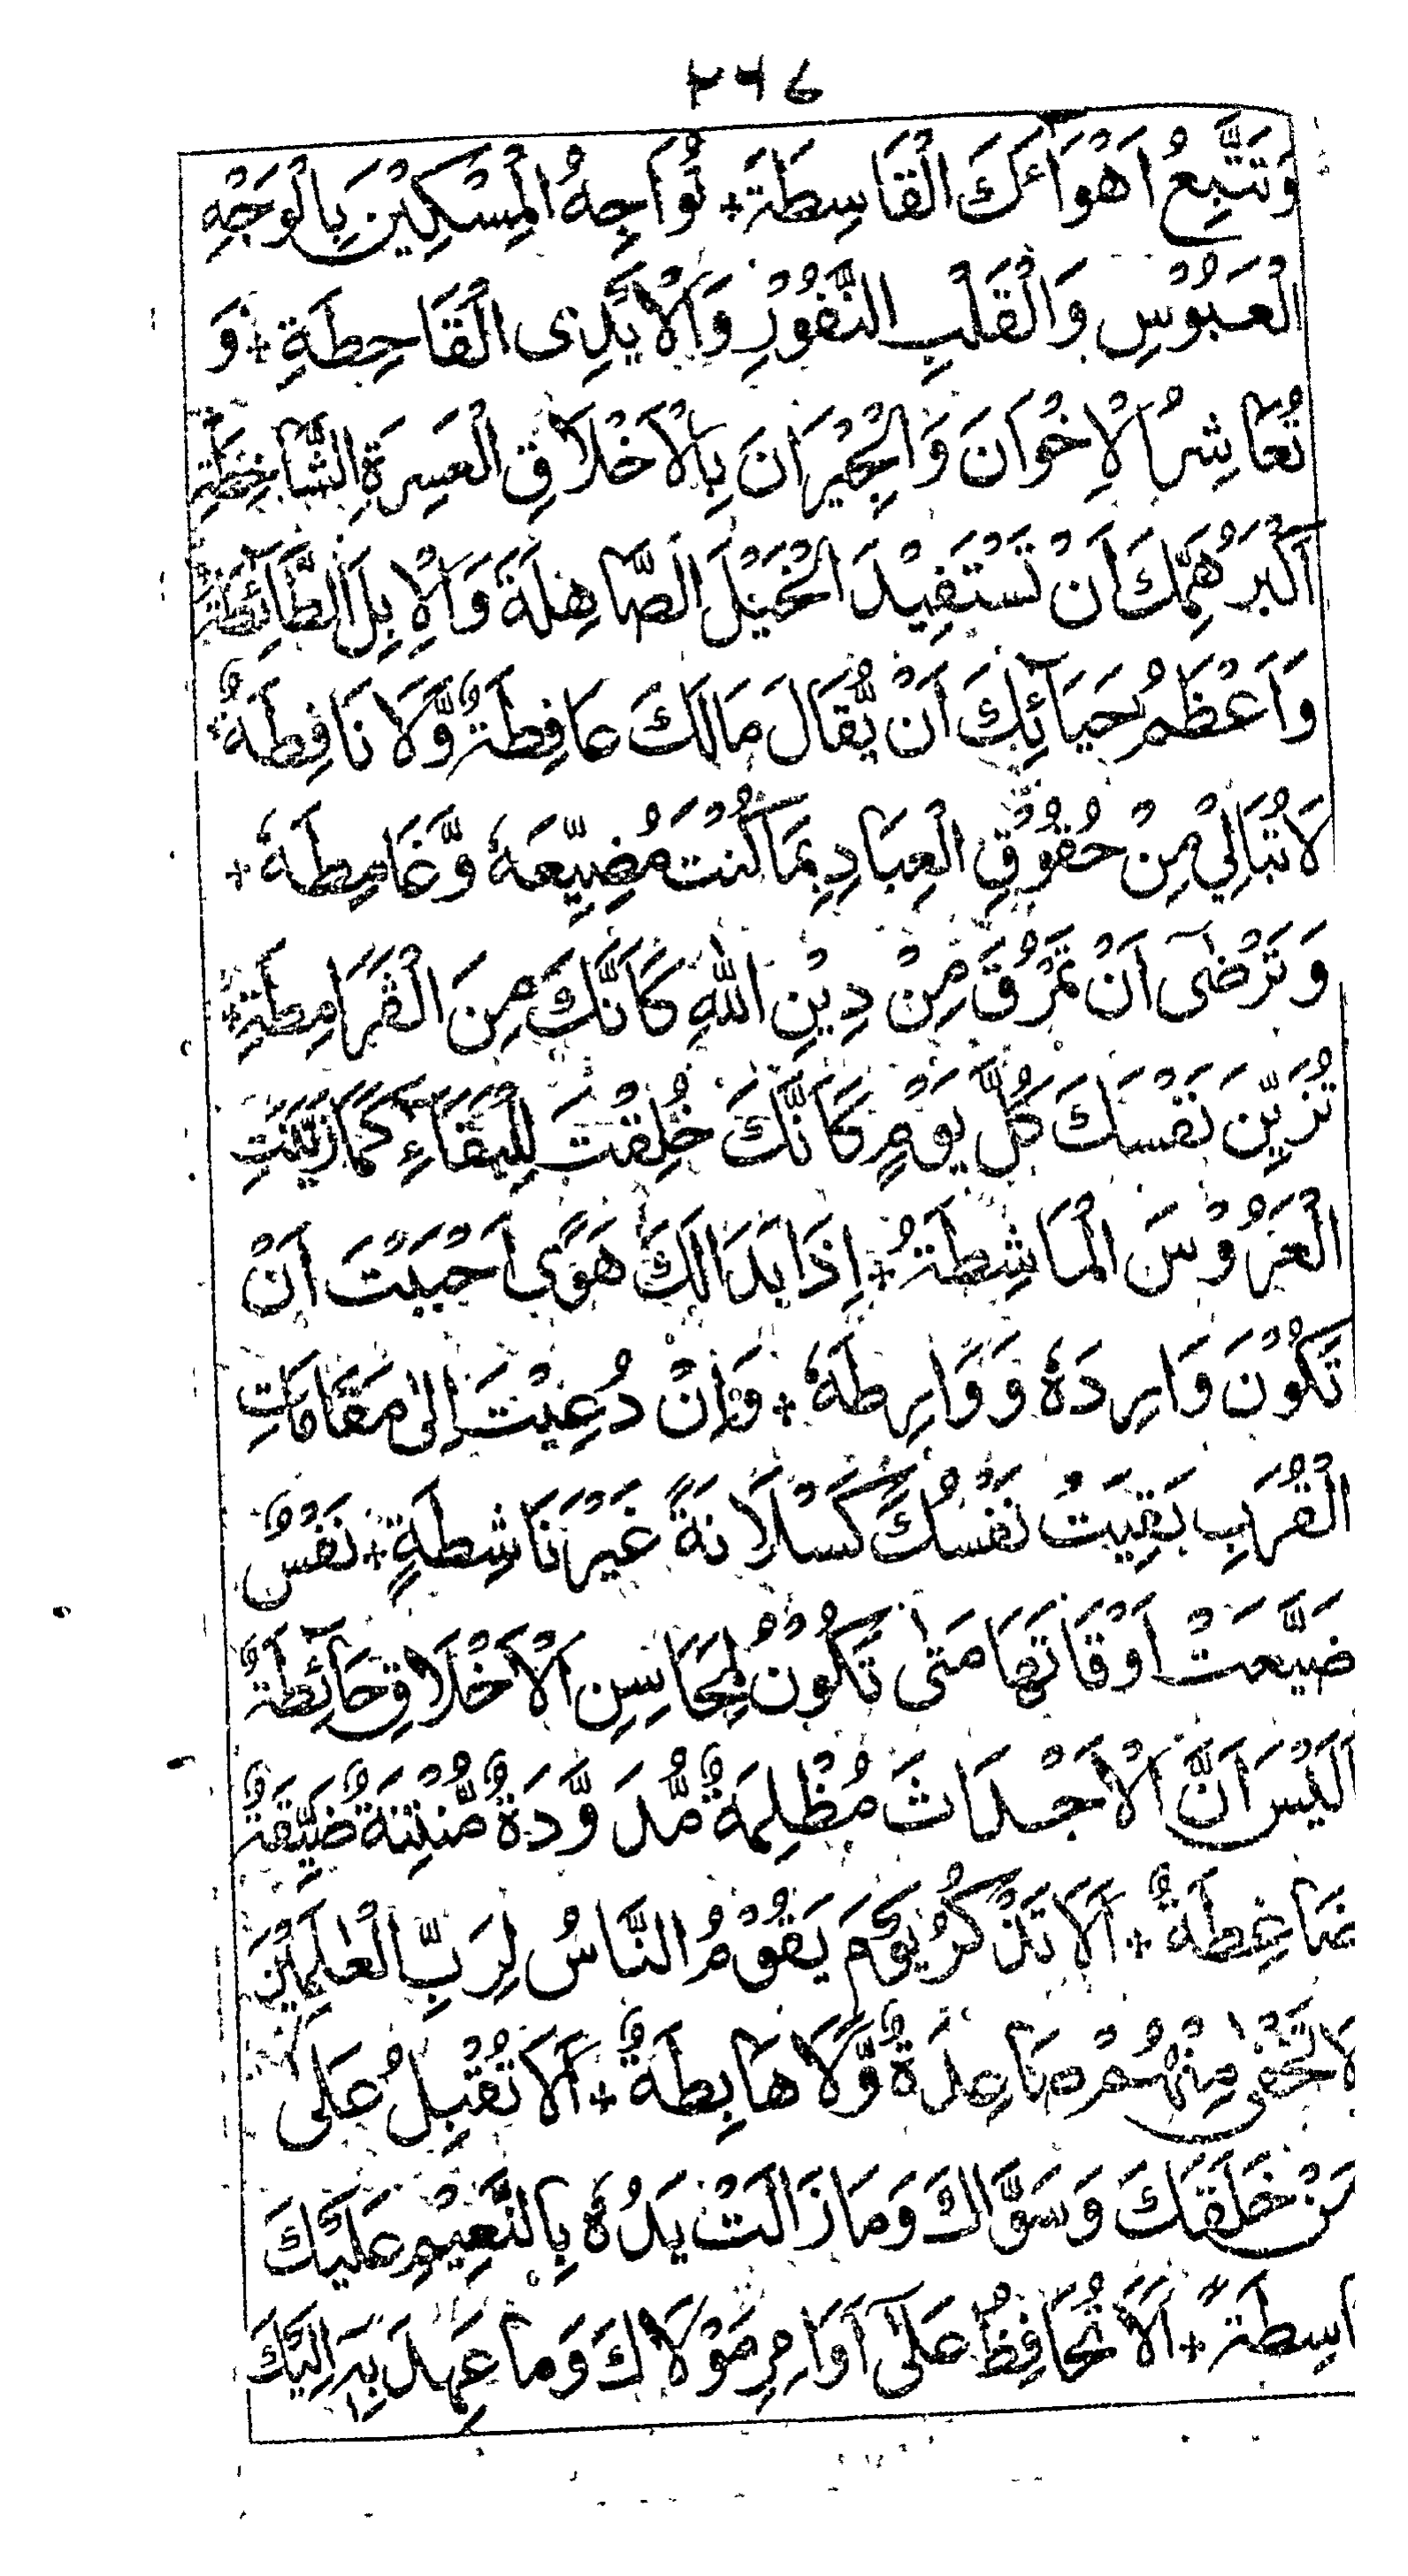 ٢٦٦
وَتَتَّبِعُ اَهْوَائَكَ الْقَاسِطَةَ + تُوَاجِهُ الْمِسْكِيْنَ بِالْوَجْهِ
الْعَبُوْسِ وَالْقَلْبِ النَّفُوْرِ وَالْاَيْدِى الْقَاحِطَةِ + وَ
تُعَاشِرُ الْاِخْوَانَ وَالْجِيْرَانَ بِالْاَخْلَاقِ الْعَسِرَةِ الشَّاخِطَةِ
اَكْبَرُ هَمِّكَ اَنْ تَسْتَفِيْدَ الْخَيْلَ الصَّاهِلَةَ وَالْاِبِلَ الطَّائِطَةَ
وَاَعْظَمُ حَيَائِكَ اَنْ يُّقَالَ مَالَكَ عَافِطَةٌ وَّلَا نَافِطَةٌ
لَا تُبَالِيْ مِنْ حُقُوْقِ الْعِبَادِ بِمَا كُنْتَ مُضِيِّعَهٗ وَّغَامِطَهٗ +
وَتَرْضٰى اَنْ تَمْرُقَ مِنْ دِيْنِ اللّٰهِ كَاَنَّكَ مِنَ الْقَرَامِطَةِ +
تُزَيِّنُ نَفْسَكَ كُلَّ يَوْمٍ كَاَنَّكَ خُلِقْتَ لِلْبَقَاءِ كَمَا زَيَّنَتِ
الْعَرُوْسَ الْمَاشِطَةُ + اِذَا بَدَا لَكَ هَوًى اَحْبَبْتَ اَنْ
تَكُوْنَ وَارِدَهٗ وَوَارِطَهٗ + وَاِنْ دُعِيْتَ اِلٰى مَقَامَاتِ
الْقُرَبِ بَقِيَتْ نَفْسُكَ كَسْلَانَةً غَيْرَ نَاشِطَةٍ + نَفْسٌ
ضَيَّعَتْ اَوْقَاتَهَا مَتٰى تَكُوْنُ لِمَحَاسِنِ الْاَخْلَاقِ حَائِطَةً
اَلَيْسَ اَنَّ الْاَجْدَاثَ مُظْلِمَةٌ مُّدَوَّدَةٌ مُّنْتِنَةٌ ضَيِّقَةٌ
ضَاغِطَةٌ + اَلَا تَذْكُرُ يَوْمَ يَقُوْمُ النَّاسُ لِرَبِّ الْعٰلَمِيْنَ
لَا تَخْفٰى مِنْهُمْ صَاعِدَةٌ وَّلَا هَابِطَةٌ + اَلَا تُقْبِلُ عَلٰى
مَنْ خَلَقَكَ وَسَوَّاكَ وَمَا زَالَتْ يَدُهٗ بِالنَّعِيْمِ عَلَيْكَ
اسِطَةً + اَلَا تُحَافِظُ عَلٰى اَوَامِرِ مَوْلَاكَ وَمَا عَهِدَ بِهٖ اِلَيْكَ